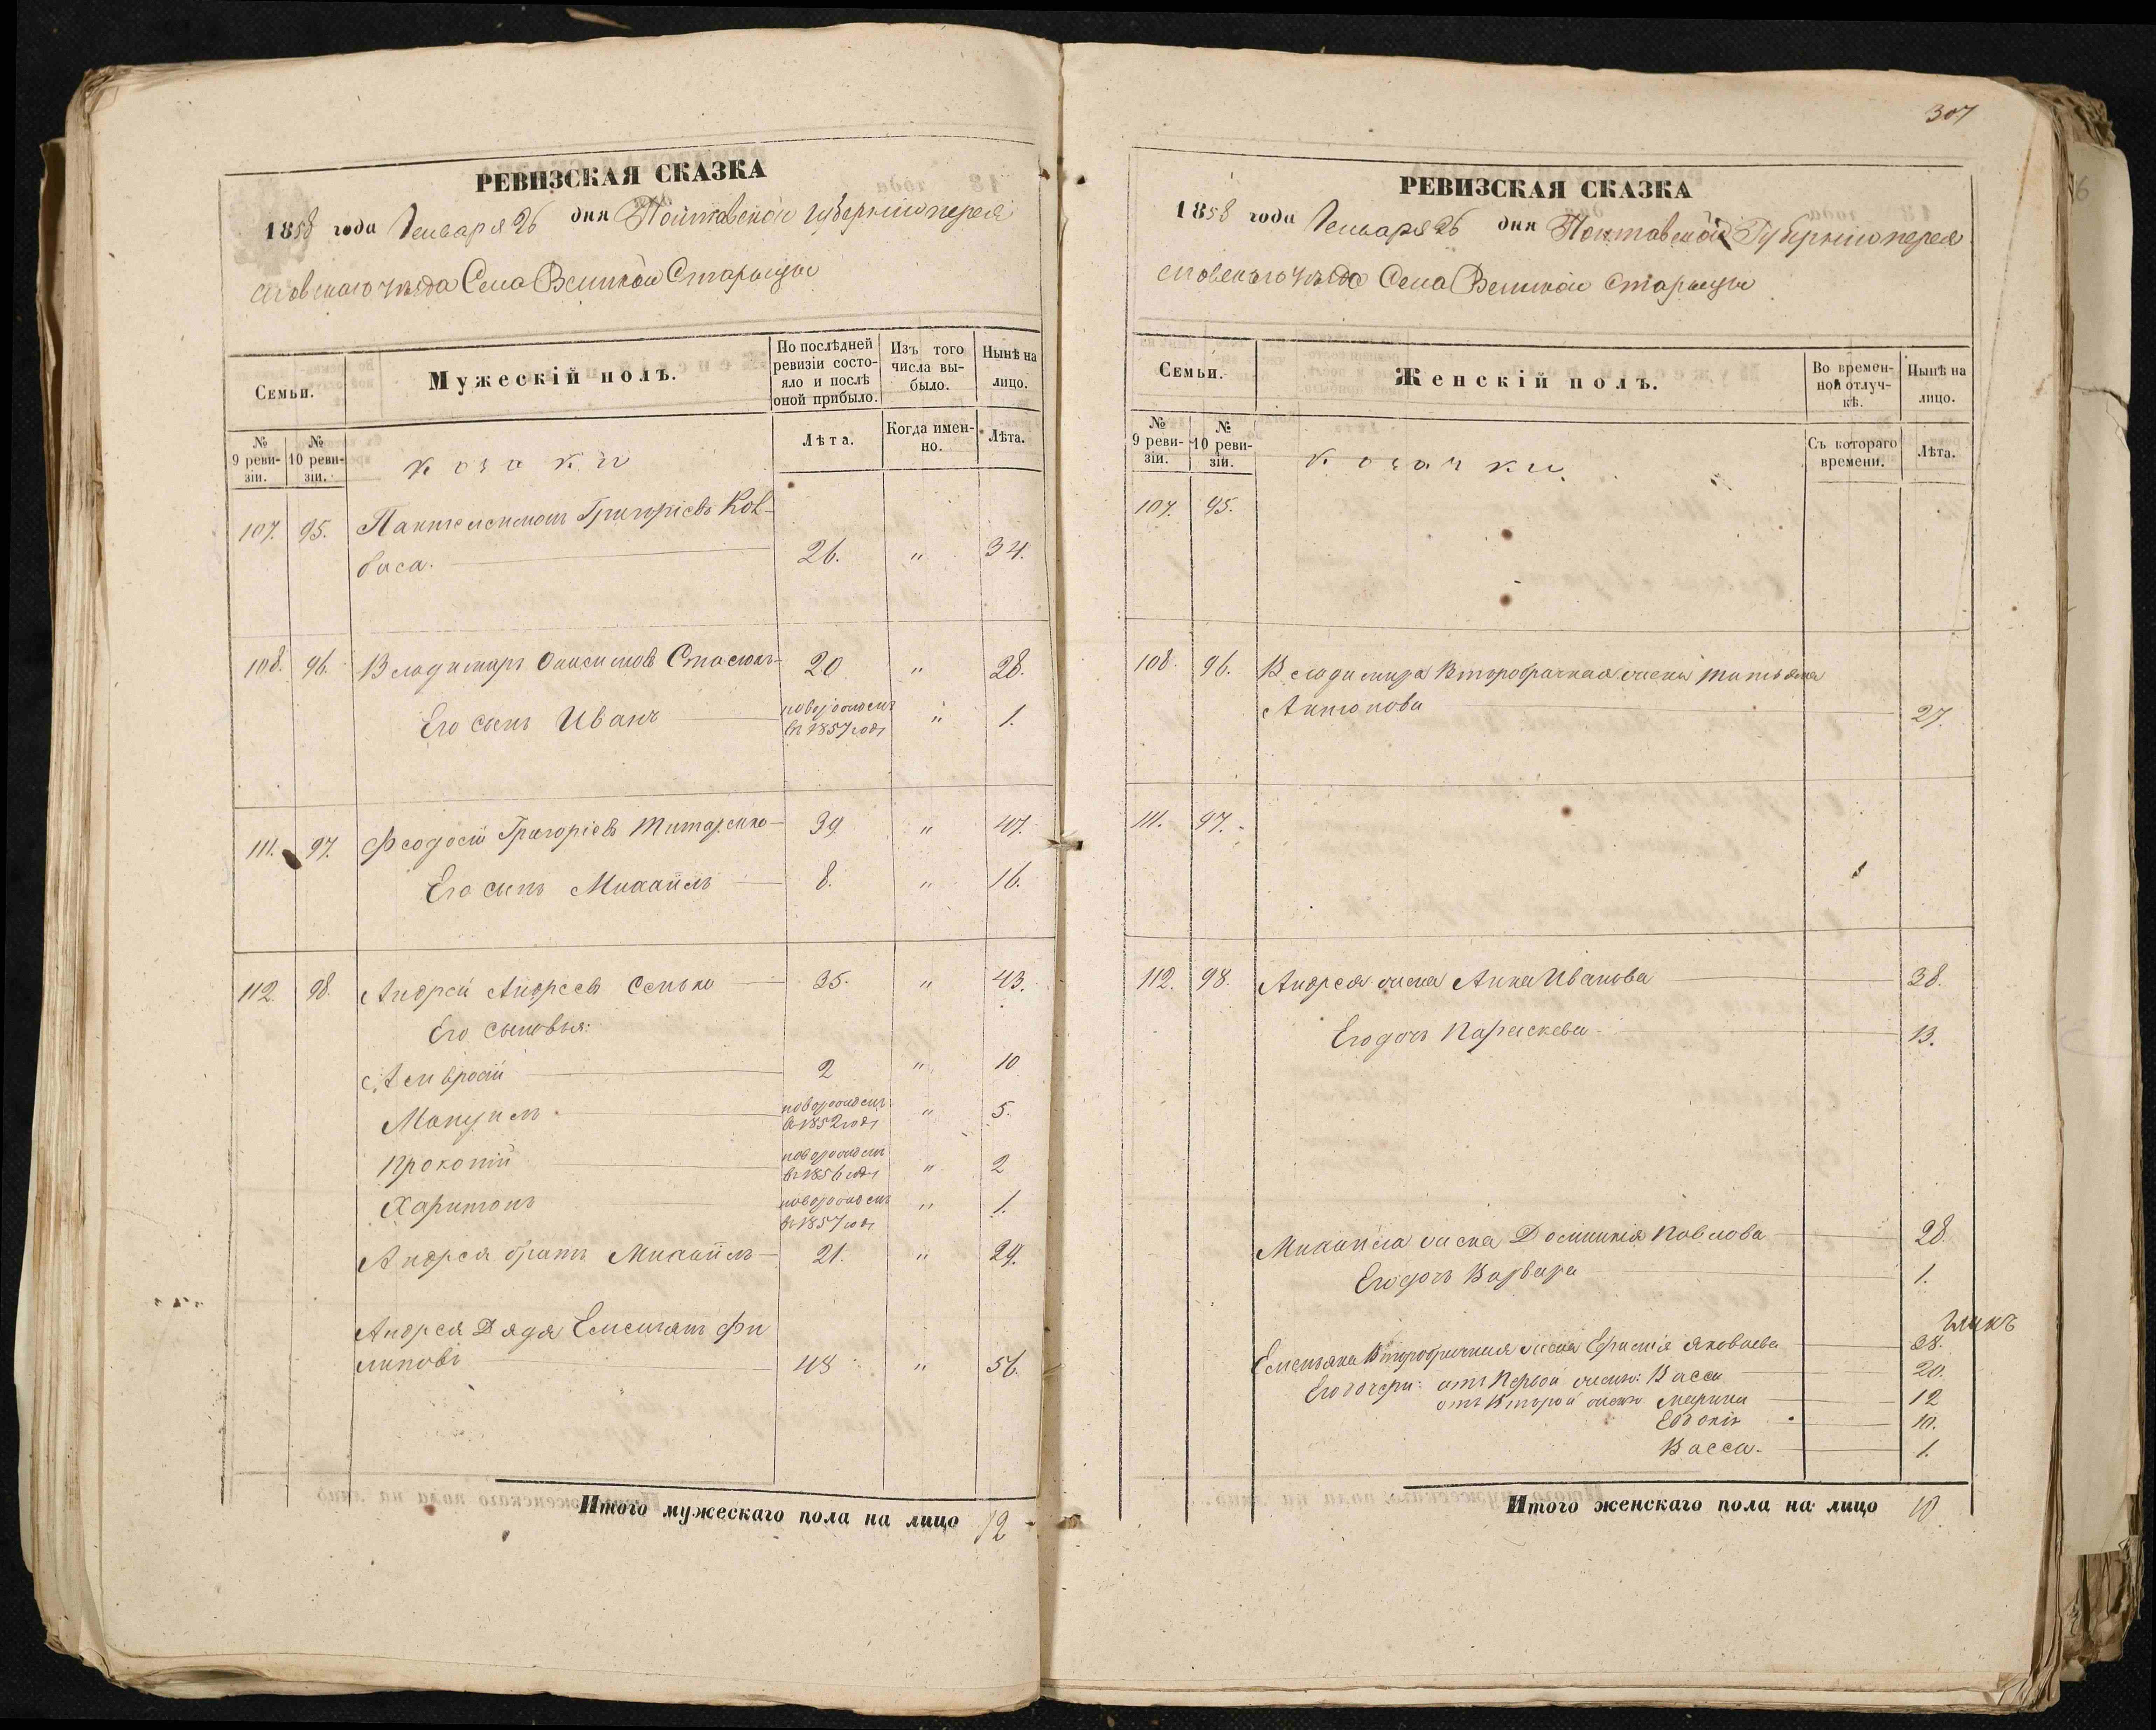 РЕВИЗСКАЯ СКАЗКА
1858 года Генваря 26 дня Полтавской губерніи перея
словскаго уѣзда Села Великой Старицы
Семьи.
Мужескій полъ.
По послѣдней ревизіи состояло и послѣ оной прибыло.
Изъ того числа выбыло.
Нынѣ на лицо.
№ 9 ревизіи.
№ 10 ревизіи.
козаки
Лѣта.
Когда именно.
Лѣта.
107. 95. Пантелеимонъ Григоріевъ Ков-
баса. 26. " 34.
108. 96. Владимиръ Онисимовъ Стасюкъ 20 " 28.
Его сынъ Иванъ новорожденъ въ 1857 годѣ " 1.
111. 97. Феодосій Григоріевъ Титаренко 39 " 47.
Его сынъ Михайлъ 8. " 16.
112. 98. Андрей Андреевъ Сенько 35. " 43.
Его сыновья:
Амвросій 2 " 10
Мануилъ новорожденъ в 1852 годѣ " 5.
Прокопій новорожденъ въ 1856 годѣ " 2
Харитонъ новорожденъ въ 1857 годѣ " 1.
Андрея братъ Михайлъ 21. " 29.
Андрея Дядя Емельянъ Фи
липовъ 48 " 56.
Итого мужескаго пола на лицо 12
307
РЕВИЗСКАЯ СКАЗКА
1858 года Генваря 26 дня Полтавской Губерніи перея
словскаго уѣзда Села Великой Старицы
Семьи.
Женскій полъ.
Во временной отлучкѣ.
Нынѣ на лицо.
№ 9 ревизіи.
№ 10 ревизіи.
козачки.
Съ котораго времени.
Лѣта.
107. 95.
108. 96. Владимира Второбрачная жена Татьяна
Антонова 27.
111. 97.
112. 98. Андрея жена Анна Иванова 38.
Его дочь Параскева 13.
Михайла жена Домникія Павлова 28.
Его дочь Варвара 1.
Емельяна Второбрачная жена Ефимія Яковлева 38.
Его дочери: отъ Первой жены: Васса 20.
отъ Второй жены Марина 12
Евдокія 10.
Васса. 1.
Итого женскаго пола на лицо 10.